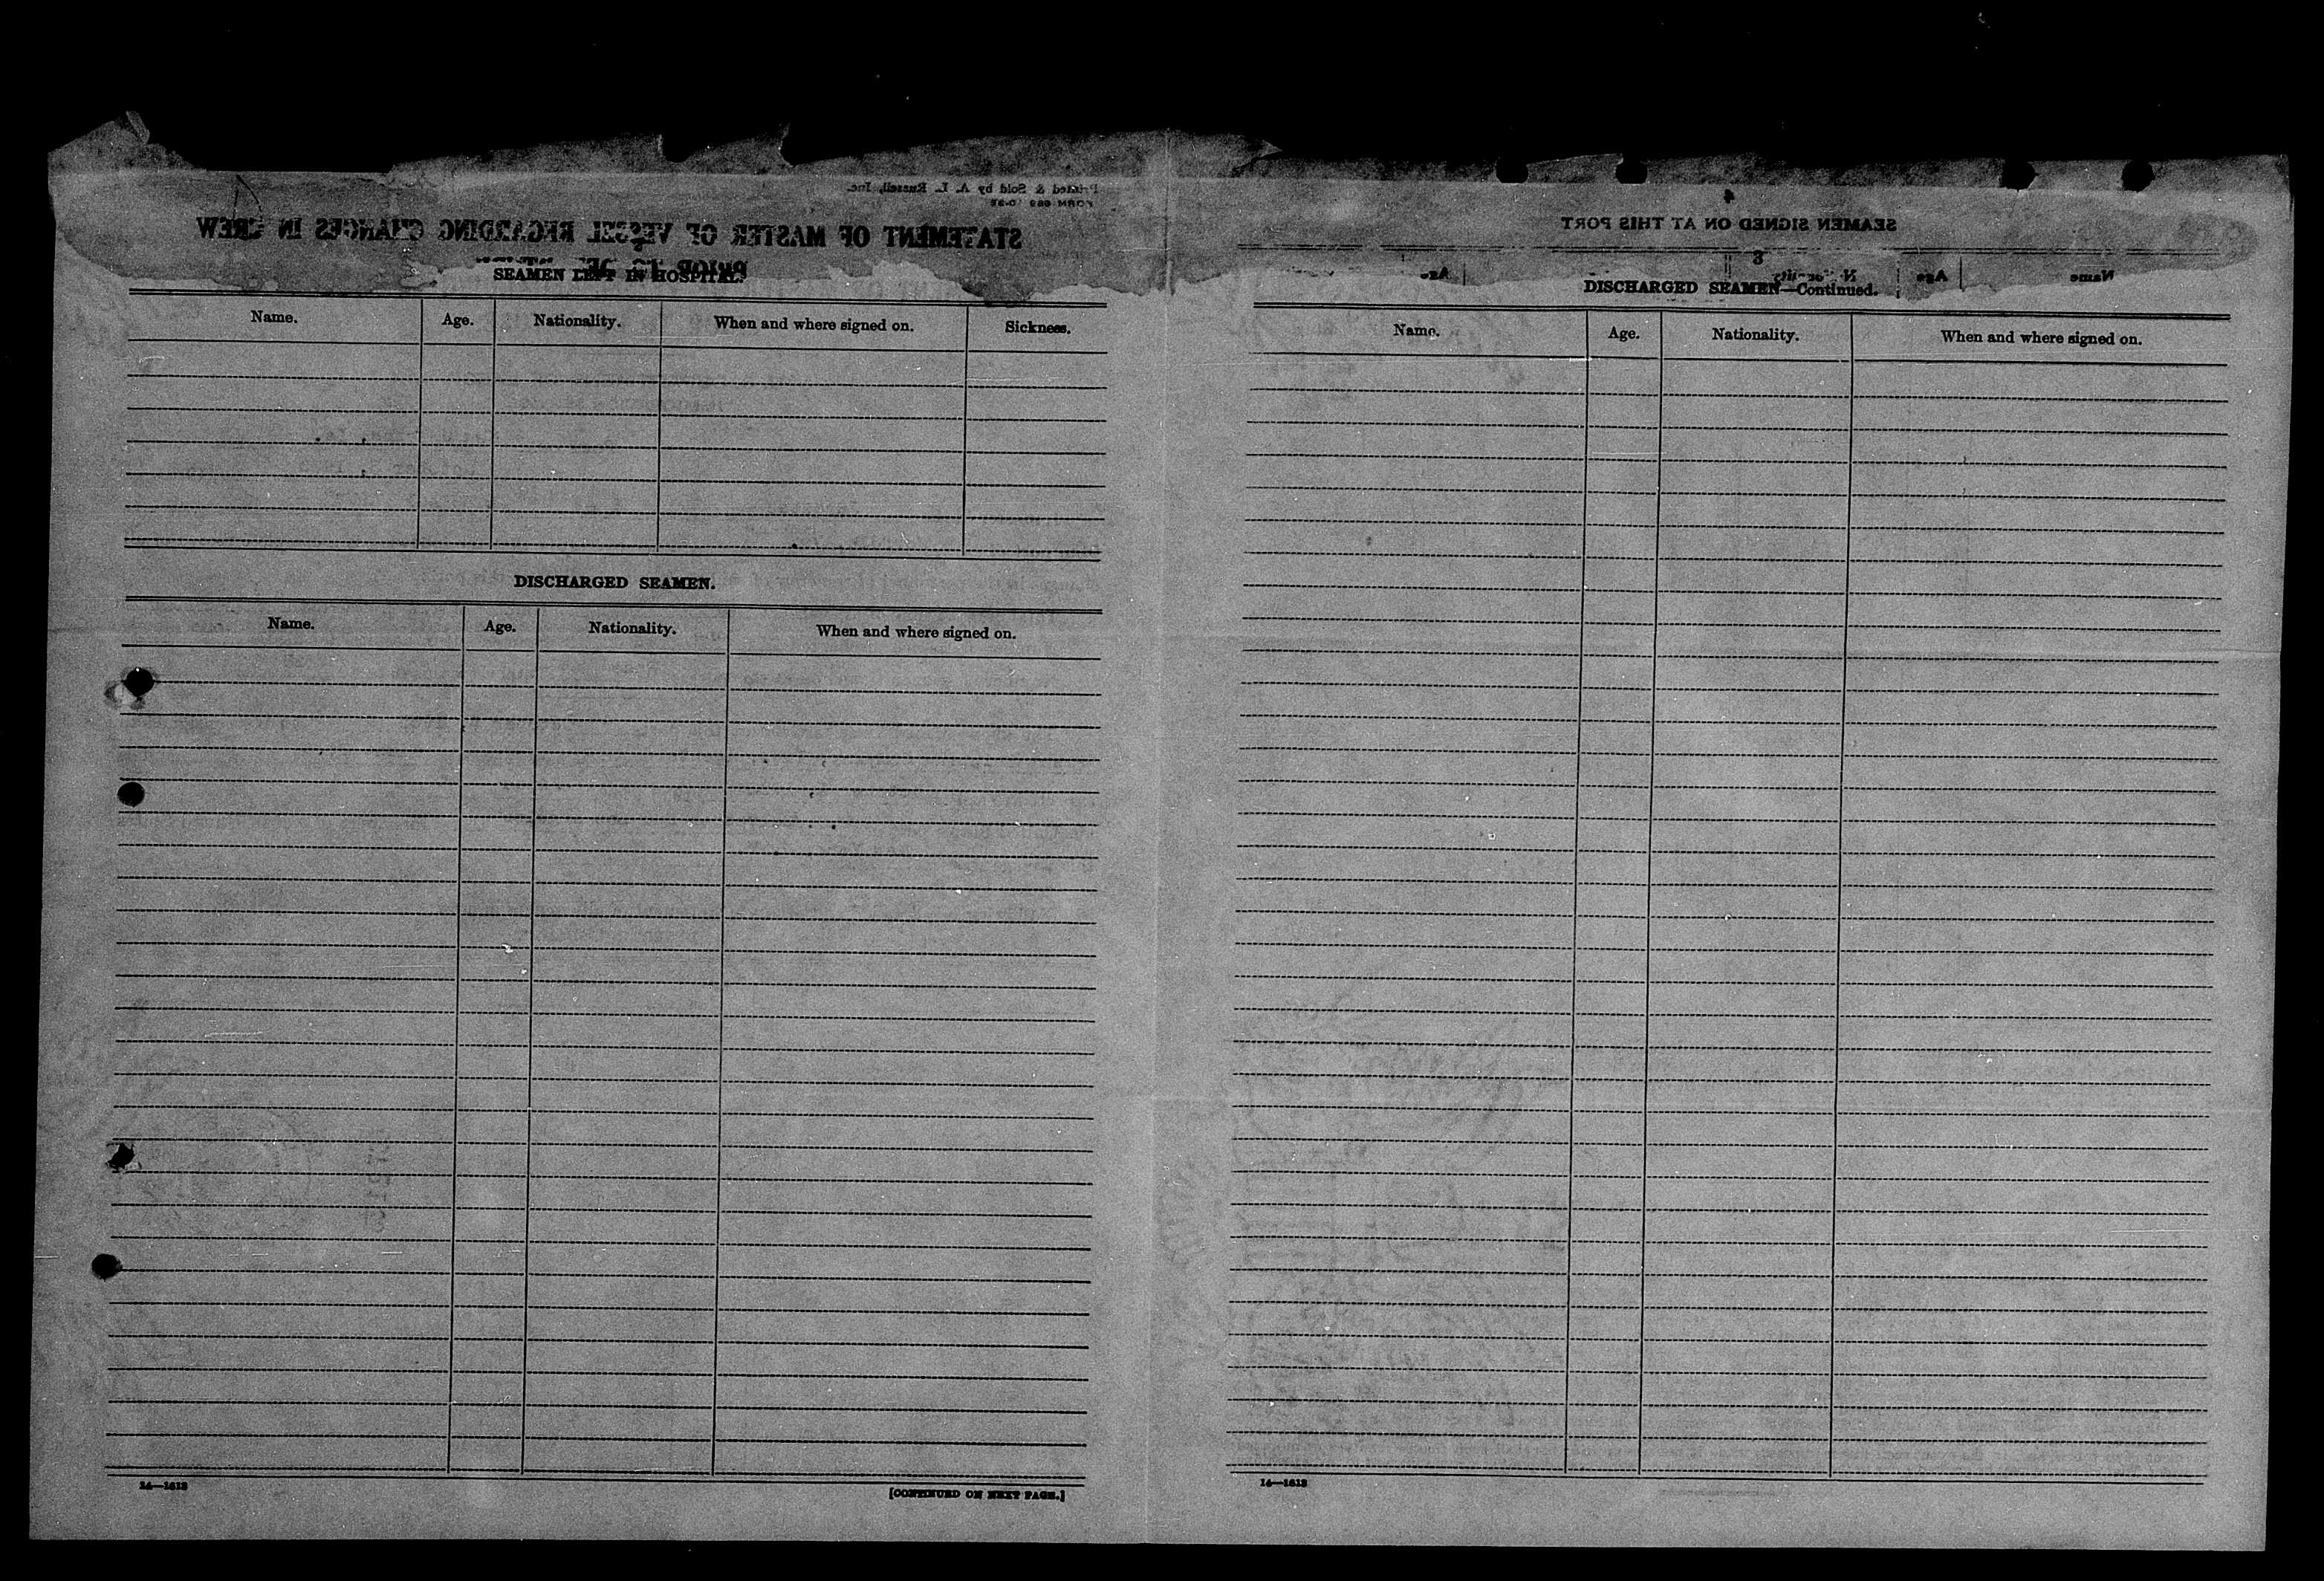 Printed & Sold by A. L. Russell, Inc.
STATEMENT OF MASTER OF VESSEL REGARDING CHANGES IN CREW
PRIOR TO
SEAMEN LEFT IN HOSPITAL.
Name. Age. Nationality. When and where signed on. Sickness.
DISCHARGED SEAMEN.
Name. Age. Nationality. When and where signed on.
14—1613
[CONTINUED ON NEXT PAGE.]
4
SEAMEN SIGNED ON AT THIS PORT
3
Name Age Nationality Age
DISCHARGED SEAMEN—Continued.
Name. Age. Nationality. When and where signed on.
14—1613